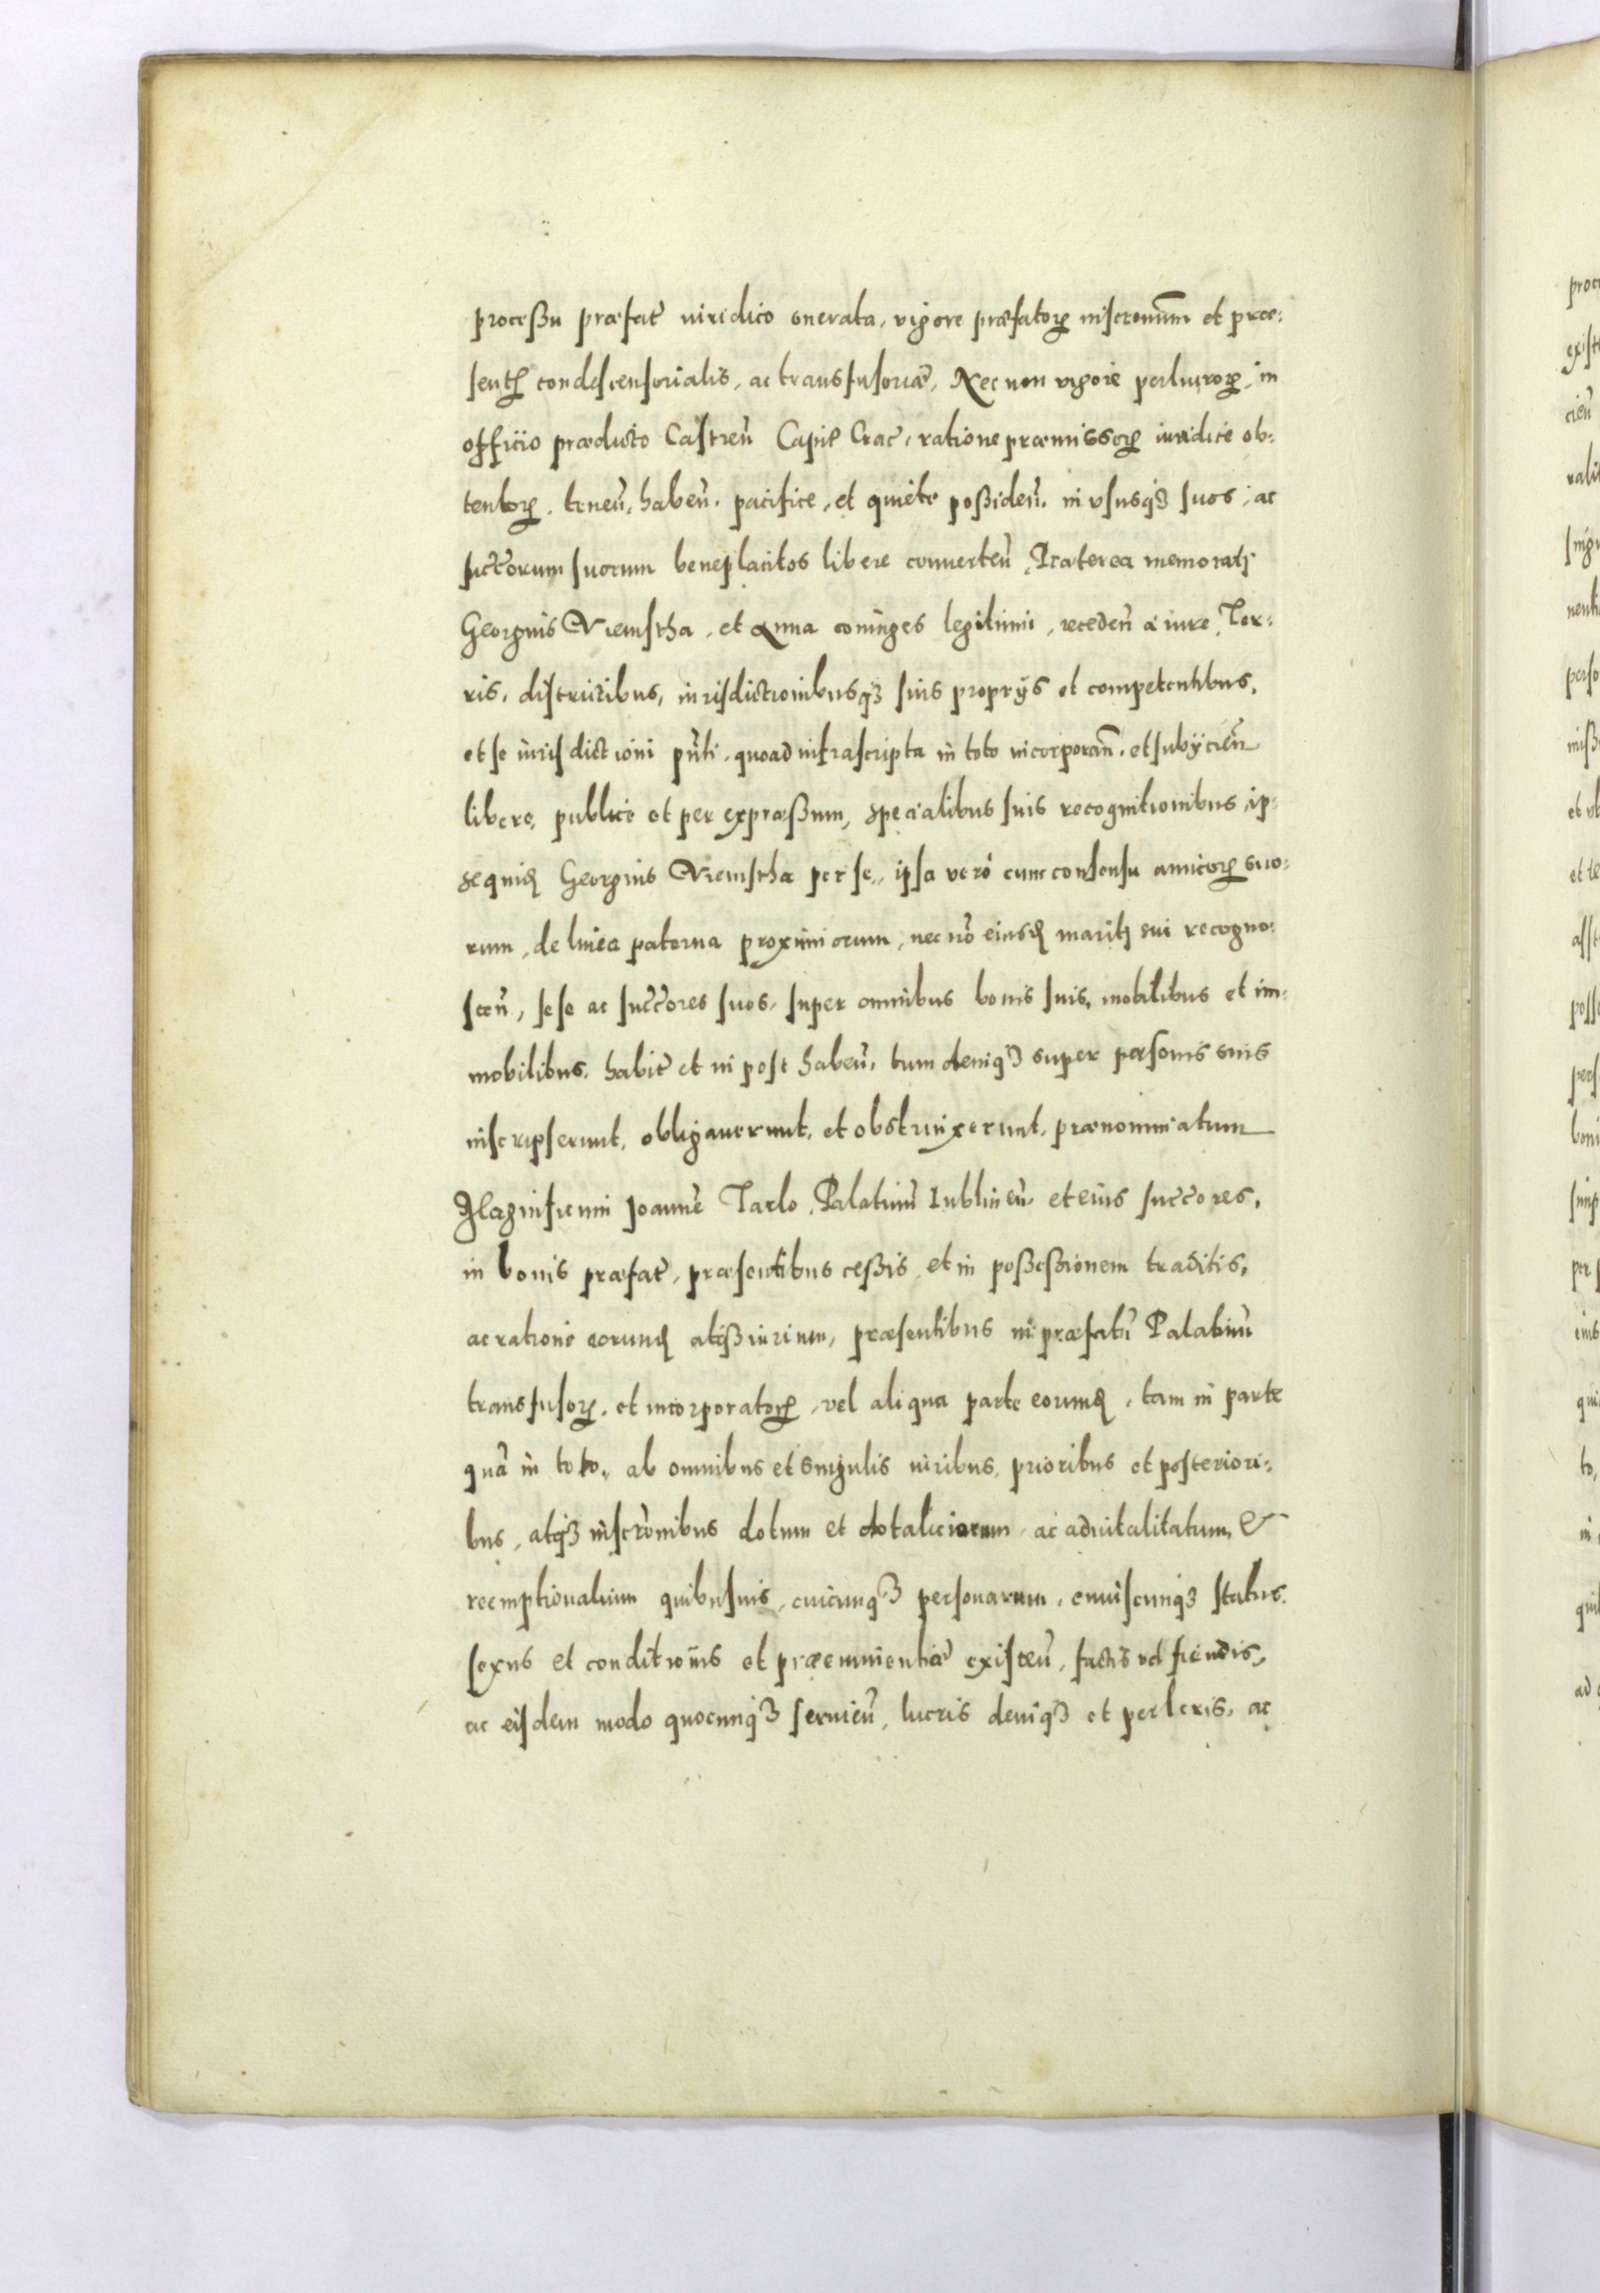 processu præfat̃ iuridico onerata, vigore præfatoꝝ inscronum̃ et præ:
sentiũ condescensorialis, ac transfusoriæ, Nec non vigore perlucroꝝ, in
officio prædicto Castreñ Capit̃ Crac̃, ratione præmissoꝝ iuridicè ob:
tentoꝝ, teneñ, habeñ, pacifice, et quietè possideñ, in vsusqȝ suos, ac
succ̃orum suorum beneplacitos libere conuerteñ. Præterea memorati
Georgius Niemstha, et Anna coniuges legitimi, recedeñ à iure, Ter:
ris, districtibus, iurisdictionibusqȝ suis proprijs et competentibus,
et se iurisdictioni pñti, quoad infrascripta in toto incorporañ, et subijcieñ
libere, publicè et per expressum, specialibus suis recognitionibus, ip:
sequid̃ Georgius Niemstha per se, ipsa verò cum consensu amicoꝝ suo:
rum, de linea paterna proximiorum, nec nõ eiusd̃ mariti sui recogno:
sceñ, sese ac succ̃ores suos, super omnibus bonis suis, mobilibus et im:
mobilibus, habit̃ et in post habeñ, tum deniqȝ super personis suis
inscripserunt, obligauerunt, et obstrinxerunt, prænominatum
Magnificum Joannẽ Tarlo, Palatinũ Lublineñ, et eius succ̃ores,
in bonis præfat̃, præsentibus cessis, et in possessionem traditis,
ac ratione eorund̃ atqȝ iurium, præsentibus in præfatũ Palatinũ
transfusoꝝ, et incorporatoꝝ, vel aliqua parte eorund̃, tam in parte
quã in toto, ab omnibus et singulis iuribus, prioribus et posteriori:
bus, atqȝ inscrõnibus dotum et dotaliciorum, ac aduitalitatum, &
reemptionalium quibusuis, cuicunqȝ personarum, cuiuscunqȝ status
sexus et conditionis et præeminentiæ existeñ, factis vel fiendis,
ac eisdem modo quocunqȝ seruieñ, lucris deniqȝ et perlcris, ac